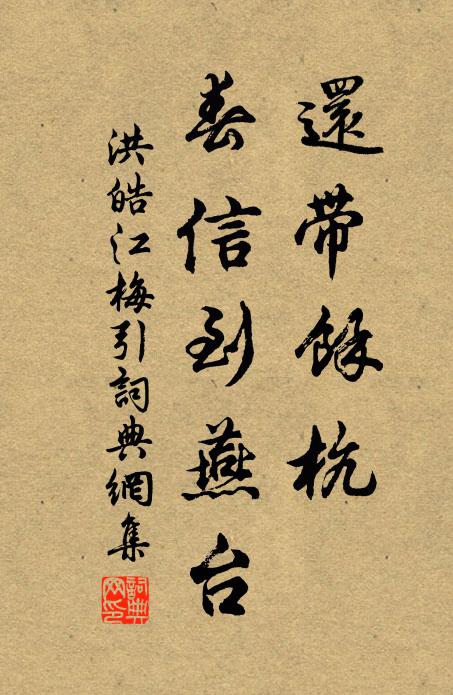 還帶餘杭
春信到燕台
洪皓江梅引詞典網集
詞典网印